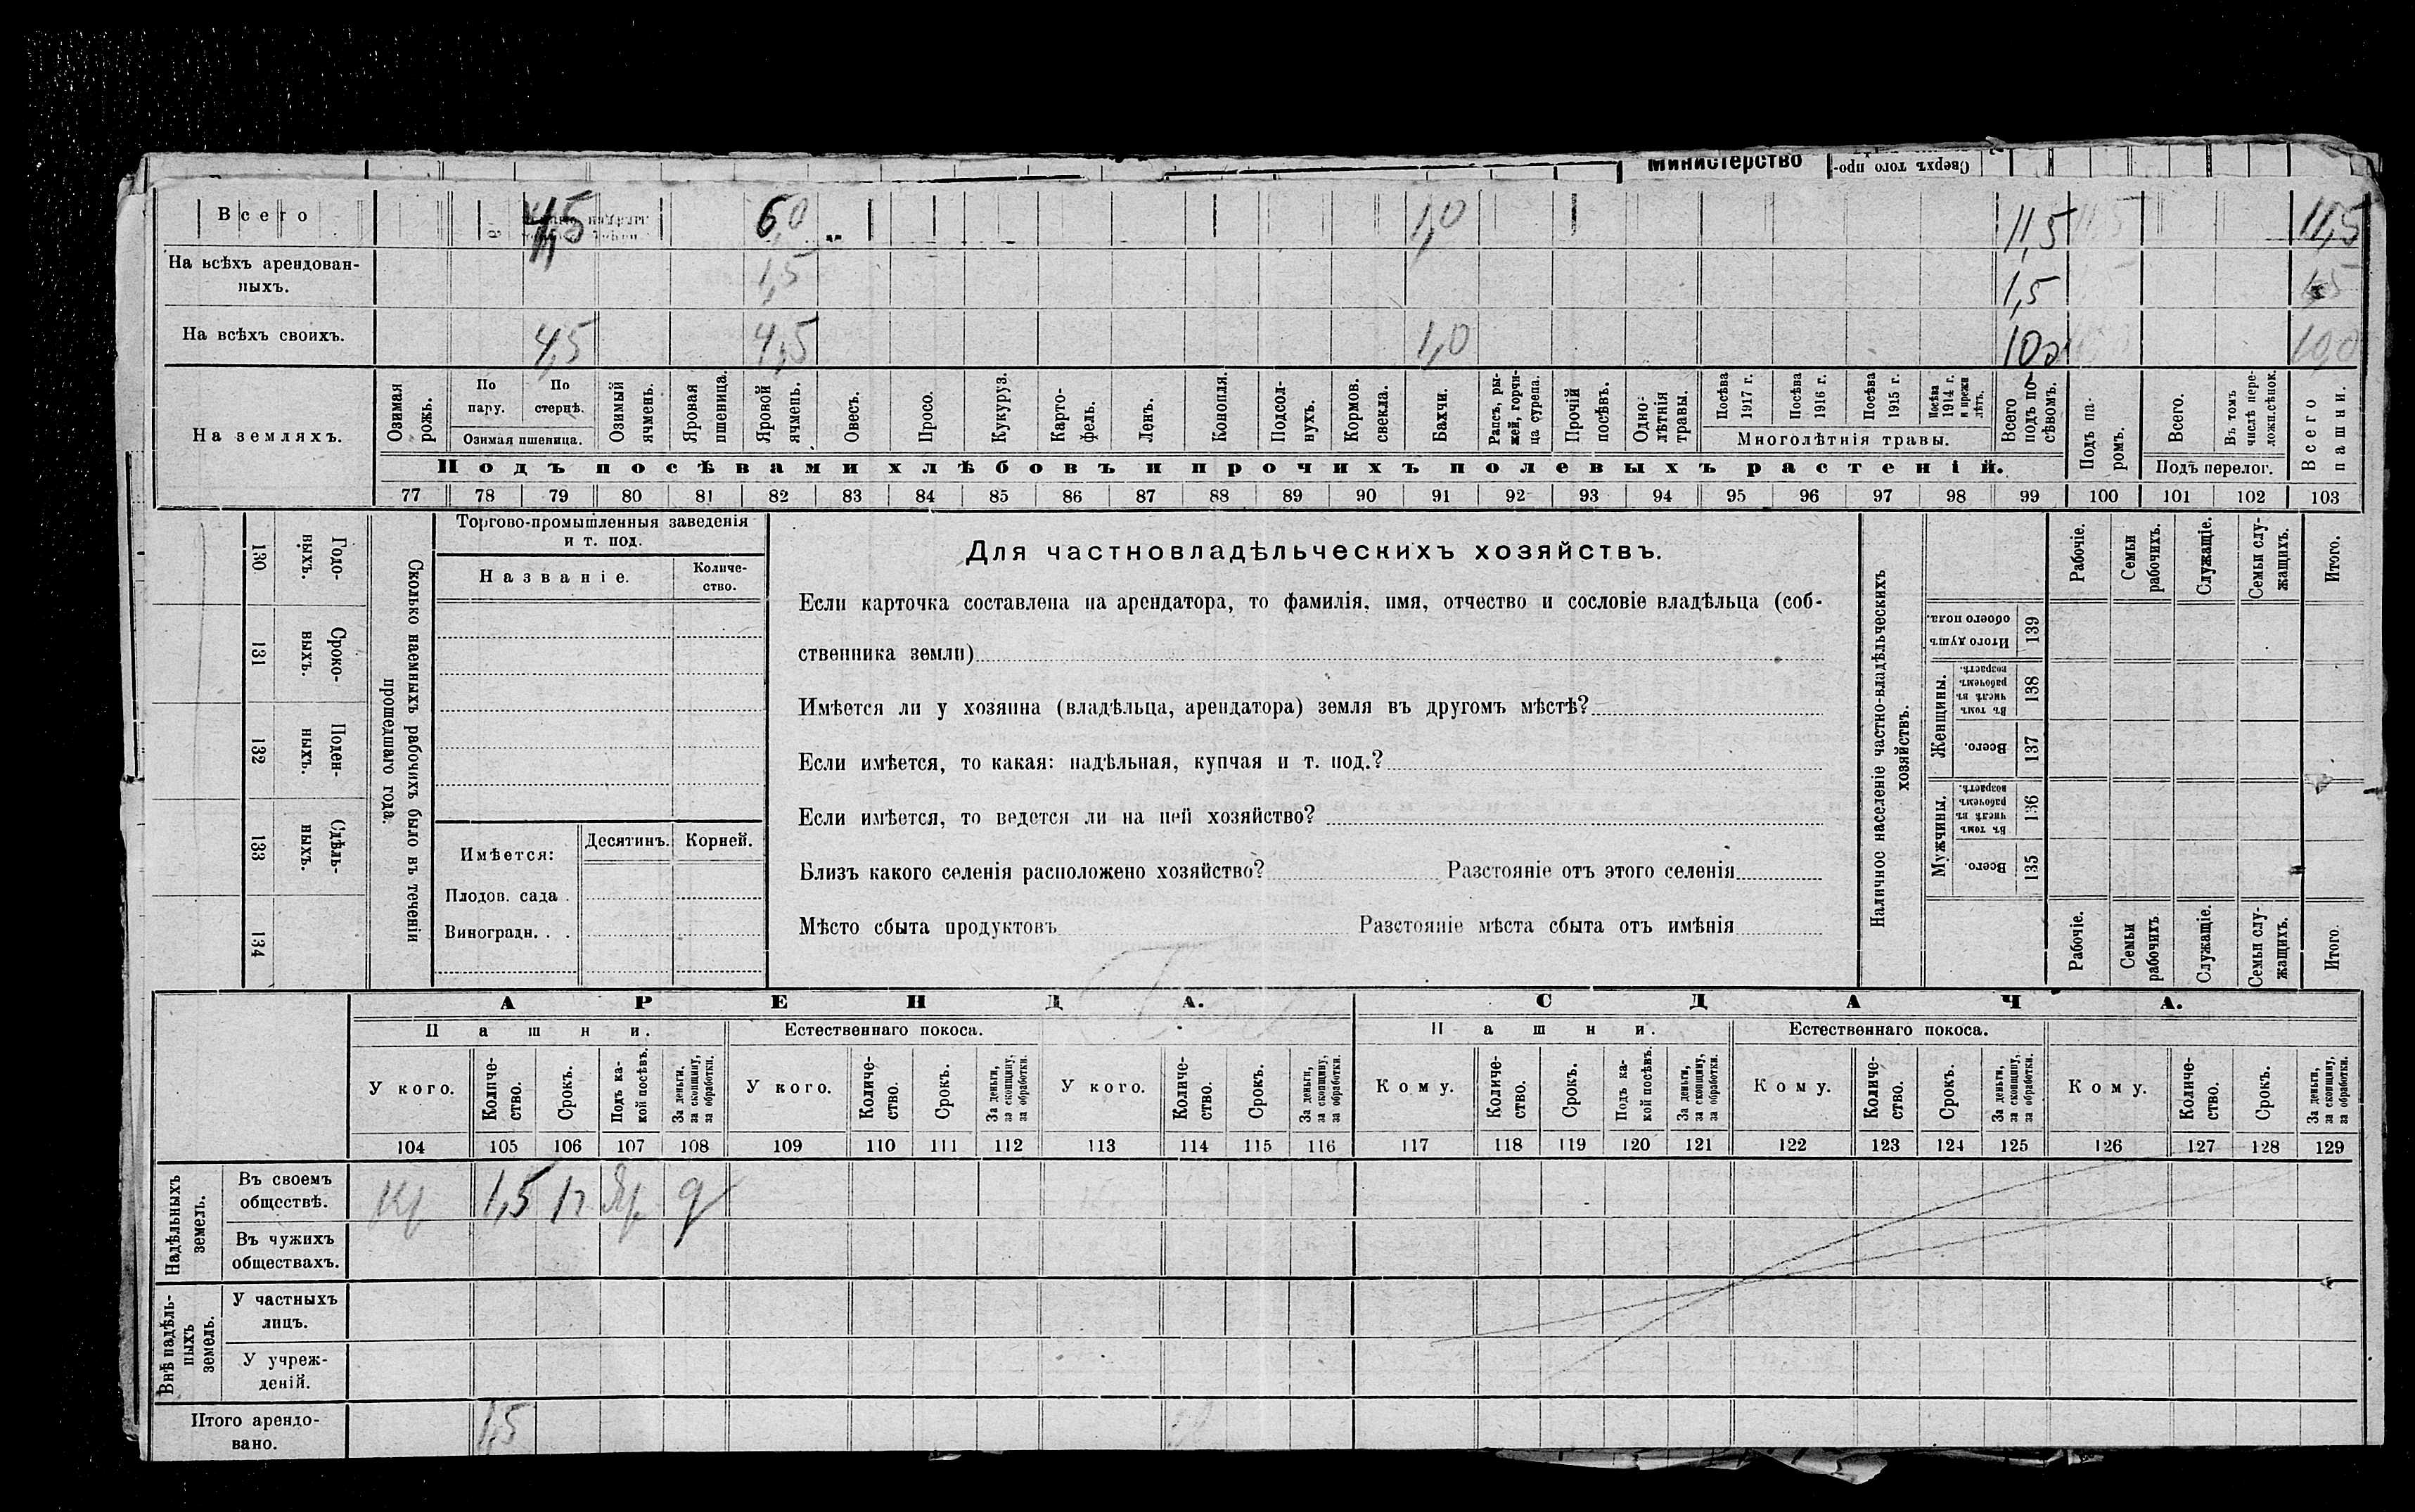 Министерство
Сверхъ того про-
Всего 4,5 6,0 1,0 11,5 11,5
На всѣхъ арендован-
ныхъ. 1,5 1,5 1,5
На всѣхъ своихъ. 4,5 4,5 1,0 10,0 10,0
На земляхъ.
Озимая рожь.
По пару.
По стернѣ.
Озимая пшеница.
Озимый ячмень.
Яровая пшеница.
Яровой ячмень.
Овесъ.
Просо.
Кукуруз.
Карто-
фель.
Ленъ.
Конопля.
Подсол-
нухъ.
Кормов.
свекла.
Бахчи.
Рапсъ, ры-
жей, горчи-
ца сурепа.
Прочій
посѣвъ.
Одно-
лѣтнія
травы.
Посѣва
1917 г.
Посѣва
1916 г.
Посѣва
1915 г.
Посѣва
1914 г.
и прежн
лѣтъ.
Многолѣтнія травы.
Всего
подъ по-
сѣвомъ.
Подъ па-
ромъ.
Всего.
Въ томъ
числѣ пере-
ложн.сѣнок.
Подъ перелог.
Всего
пашни.
Подъ посѣвами хлѣбовъ и прочихъ полевыхъ растеній.
77 78 79 80 81 82 83 84 85 86 87 88 89 90 91 92 93 94 95 96 97 98 99 100 101 102 103
Годо-
выхъ.
130
Сроко-
выхъ.
131
Поден-
ныхъ.
132
Сдѣль-
ныхъ.
133
134
Сколько наемныхъ рабочихъ было въ теченіи
прошедшаго года.
Торгово-промышленныя заведенія
и т. под.
Названіе.
Количе-
ство.
Имѣется:
Десятинъ.
Корней.
Плодов. сада .
Виноградн. . .
Для частновладѣльческихъ хозяйствъ.
Если карточка составлена на арендатора, то фамилія, имя, отчество и сословіе владѣльца (соб-
ственника земли)
Имѣется ли у хозяина (владѣльца, арендатора) земля въ другомъ мѣстѣ?
Если имѣется, то какая: надѣльная, купчая и т. под.?
Если имѣется, то ведется ли на ней хозяйство?
Близъ какого селенія расположено хозяйство? Разстояніе отъ этого селенія
Мѣсто сбыта продуктовъ Разстояніе мѣста сбыта отъ имѣнія
Наличное населеніе частно-владѣльческихъ
хозяйствъ.
Рабочіе.
Семьи
рабочихъ.
Служащіе.
Семьи слу-
жащихъ.
Итого.
Итого душъ
обоего пола.
139
Женщины.
Въ томъ
числѣ въ
рабочемъ
возрастѣ.
138
Всего.
137
Мужчины.
Въ томъ
числѣ въ
рабочемъ
возрастѣ.
136
Всего.
135
Рабочіе.
Семьи
рабочихъ
Служащіе.
Семьи слу-
жащихъ.
Итого.
АРЕНДА. СДАЧА.
Пашни. Естественнаго покоса. Пашни. Естественнаго покоса.
У кого.
Количе-
ство.
Срокъ.
Подъ ка-
кой посѣвъ.
За деньги,
за скопщину,
за обработки.
У кого.
Количе-
ство.
Срокъ.
За деньги,
за скопщину,
за обработки.
У кого.
Количе-
ство.
Срокъ.
За деньги,
за скопщину,
за обработки.
Кому.
Количе-
ство.
Срокъ.
Подъ ка-
кой посѣвъ.
За деньги,
за скопщину,
за обработки.
Кому.
Количе-
ство.
Срокъ.
За деньги,
за скопщину,
за обработки.
Кому.
Количе-
ство.
Срокъ.
За деньги,
за скопщину,
за обработки.
104 105 106 107 108 109 110 111 112 113 114 115 116 117 118 119 120 121 122 123 124 125 126 127 128 129
Надѣльныхъ
земель.
Въ своемъ
обществѣ. Кр 1,5 1г Яр д
Въ чужихъ
обществахъ.
Внѣ надѣль-
ныхъ
земель.
У частныхъ
лицъ.
У учреж-
деній.
Итого арендо-
вано. 1,5